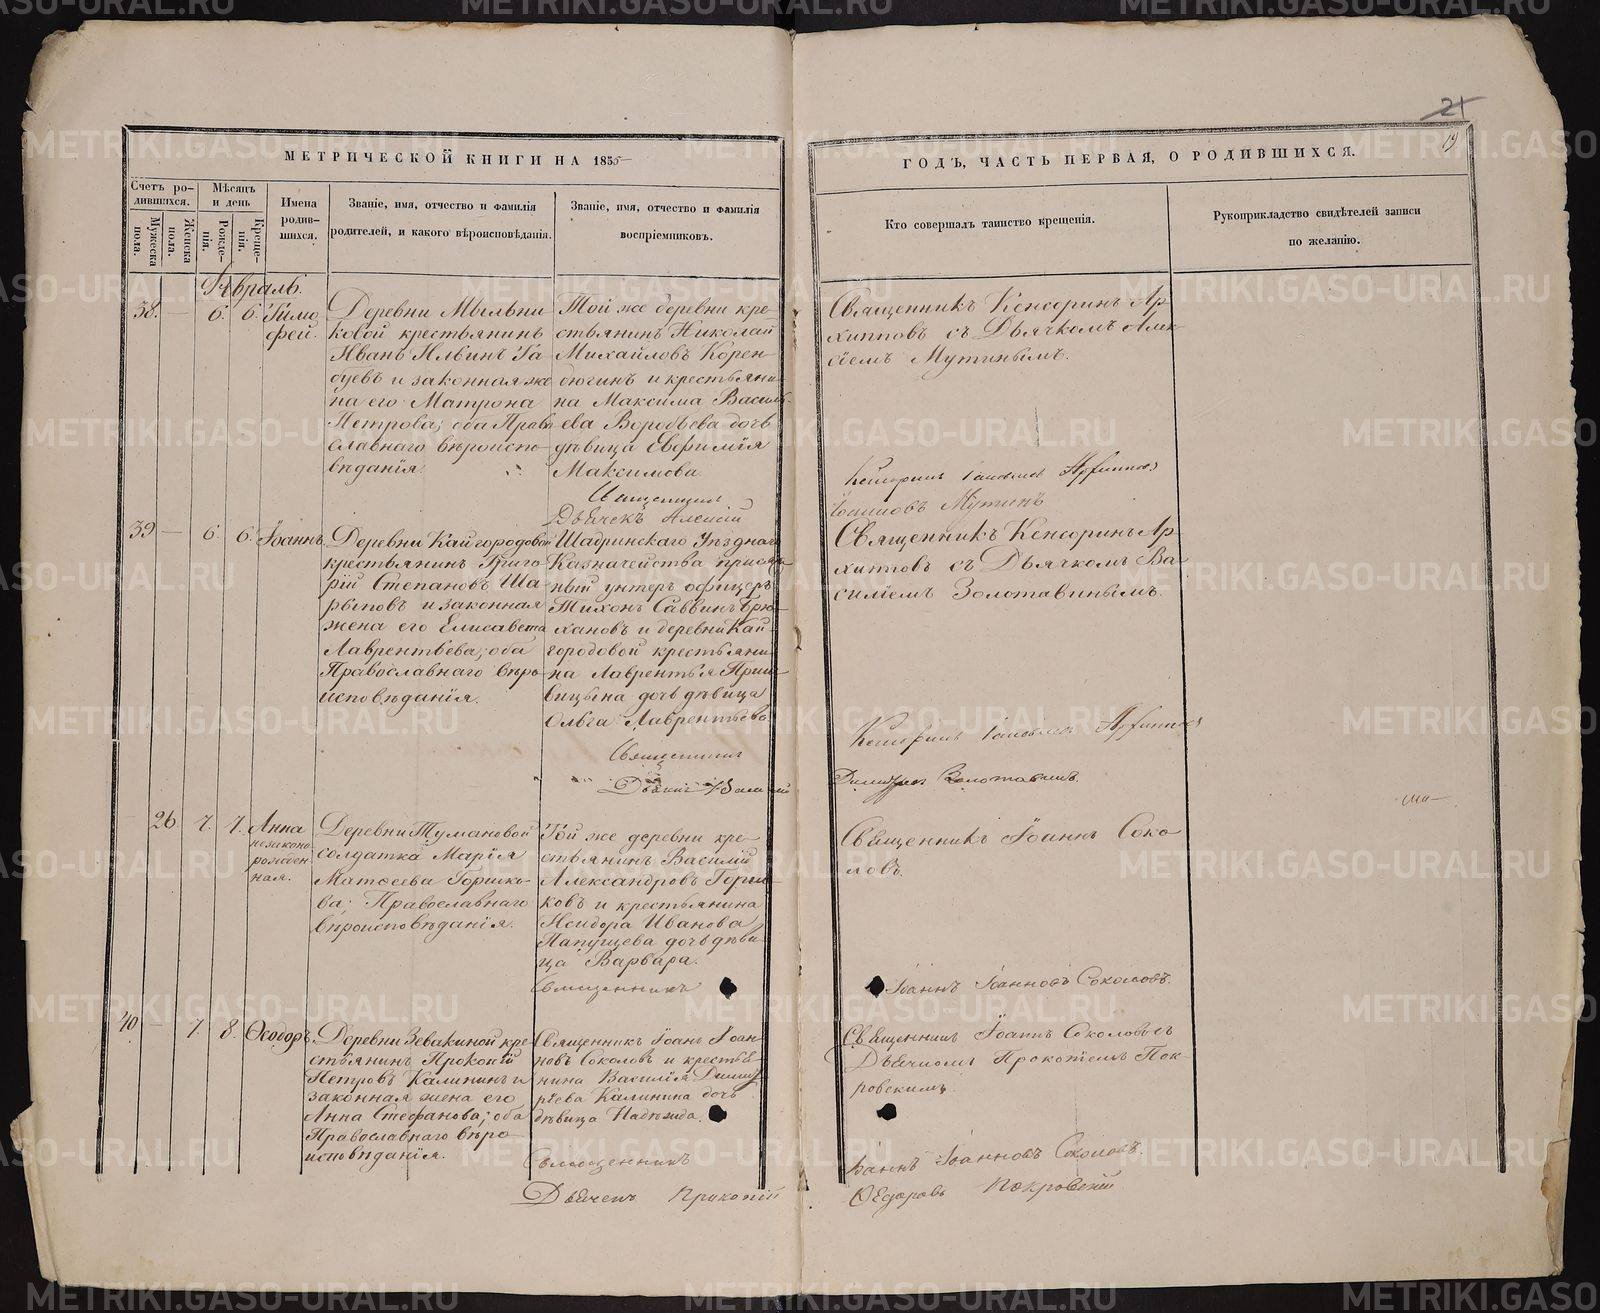 21
19
МЕТРИЧЕСКОЙ КНИГИ НА 1855
ГОДЪ, ЧАСТЬ ПЕРВАЯ, О РОДИВШИХСЯ.
Счетъ родившихся.
Мужеска пола.
Женска пола.
Мѣсяцъ и день
Рожденія.
Крещенія.
Имена родившихся.
Званіе, имя, отчество и фамилія
родителей, и какого вѣроисповѣданія.
Званіе, имя, отчество и фамилія
воспріемниковъ.
Кто совершалъ таинство крещенія.
Рукоприкладство свидѣтелей записи
по желанію.
Февраль.
38. — 6. 6. Тимо
фей.
Деревни Мыльни
ковой крестьянинъ
Иванъ Ильинъ Га
буевъ и законная же
на его Матрона
Петрова; оба Право
славнаго вѣроиспо
вѣданія.
Той же деревни кре
стьянинъ Николай
Михайловъ Корен
бюгинъ и крестьяни
на Максима Василь
ева Воробьева дочь
дѣвица Евфимія
Максимова.
Священникъ
Дьячекъ Алексій
Священникъ Кенсоринъ Ар
хипповъ съ Дьячкомъ Алек
сіемъ Мутинымъ.
Кенсоринъ Іаковлевъ Архипповъ
Мутинъ
39 — 6. 6. Іоаннъ.
Деревни Кайгородовой
крестьянинъ Григо
рій Степановъ Ша
рыповъ и законная
жена его Елисавета
Лаврентьева; оба
Православнаго вѣро
исповѣданія.
Шадринскаго Уѣзднаго
Казначейства присяж
ный унтеръ офицеръ
Тихонъ Саввинъ Брю
хановъ и деревни Кай
городовой крестьяни
на Лаврентья Прии
вицына дочь дѣвица
Ольга Лаврентьева
Священникъ
Дьячекъ Василій
Священникъ Кенсоринъ Ар
хипповъ съ Дьячкомъ Ва
силіемъ Золотавинымъ.
Кенсоринъ Іаковлевъ Архипповъ
Золотавинъ
26 7. 7. Анна
незаконо
рожден
ная.
Деревни Тумановой
солдатка Марія
Матѳеева Горшко
ва; Православнаго
вѣроисповѣданія.
Той же деревни кре
стьянинъ Василій
Александровъ Горш
ковъ и крестьянина
Исидора Иванова
Папущева дочь дѣви
ца Варвара.
Священникъ
Священникъ Іоаннъ Соко
ловъ.
Іоаннъ Іоанновъ Соколовъ.
40 — 7. 8. Ѳеодоръ.
Деревни Зевакиной кре
стьянинъ Прокопій
Петровъ Калининъ и
законная жена его
Анна Стефанова; оба
Православнаго вѣро
исповѣданія.
Священникъ Іоаннъ Іоан
новъ Соколовъ и крестья
нина Василія Димит
ріева Калинина дочь
дѣвица Надежда.
Священникъ
Дьячекъ Прокопій
Священникъ Іоаннъ Соколовъ съ
Дьячкомъ Прокопіемъ Пок
ровскимъ
Іоаннъ Іоанновъ Соколовъ.
Ѳедоровъ Покровскій
METRIKI.GASO-URAL.RU